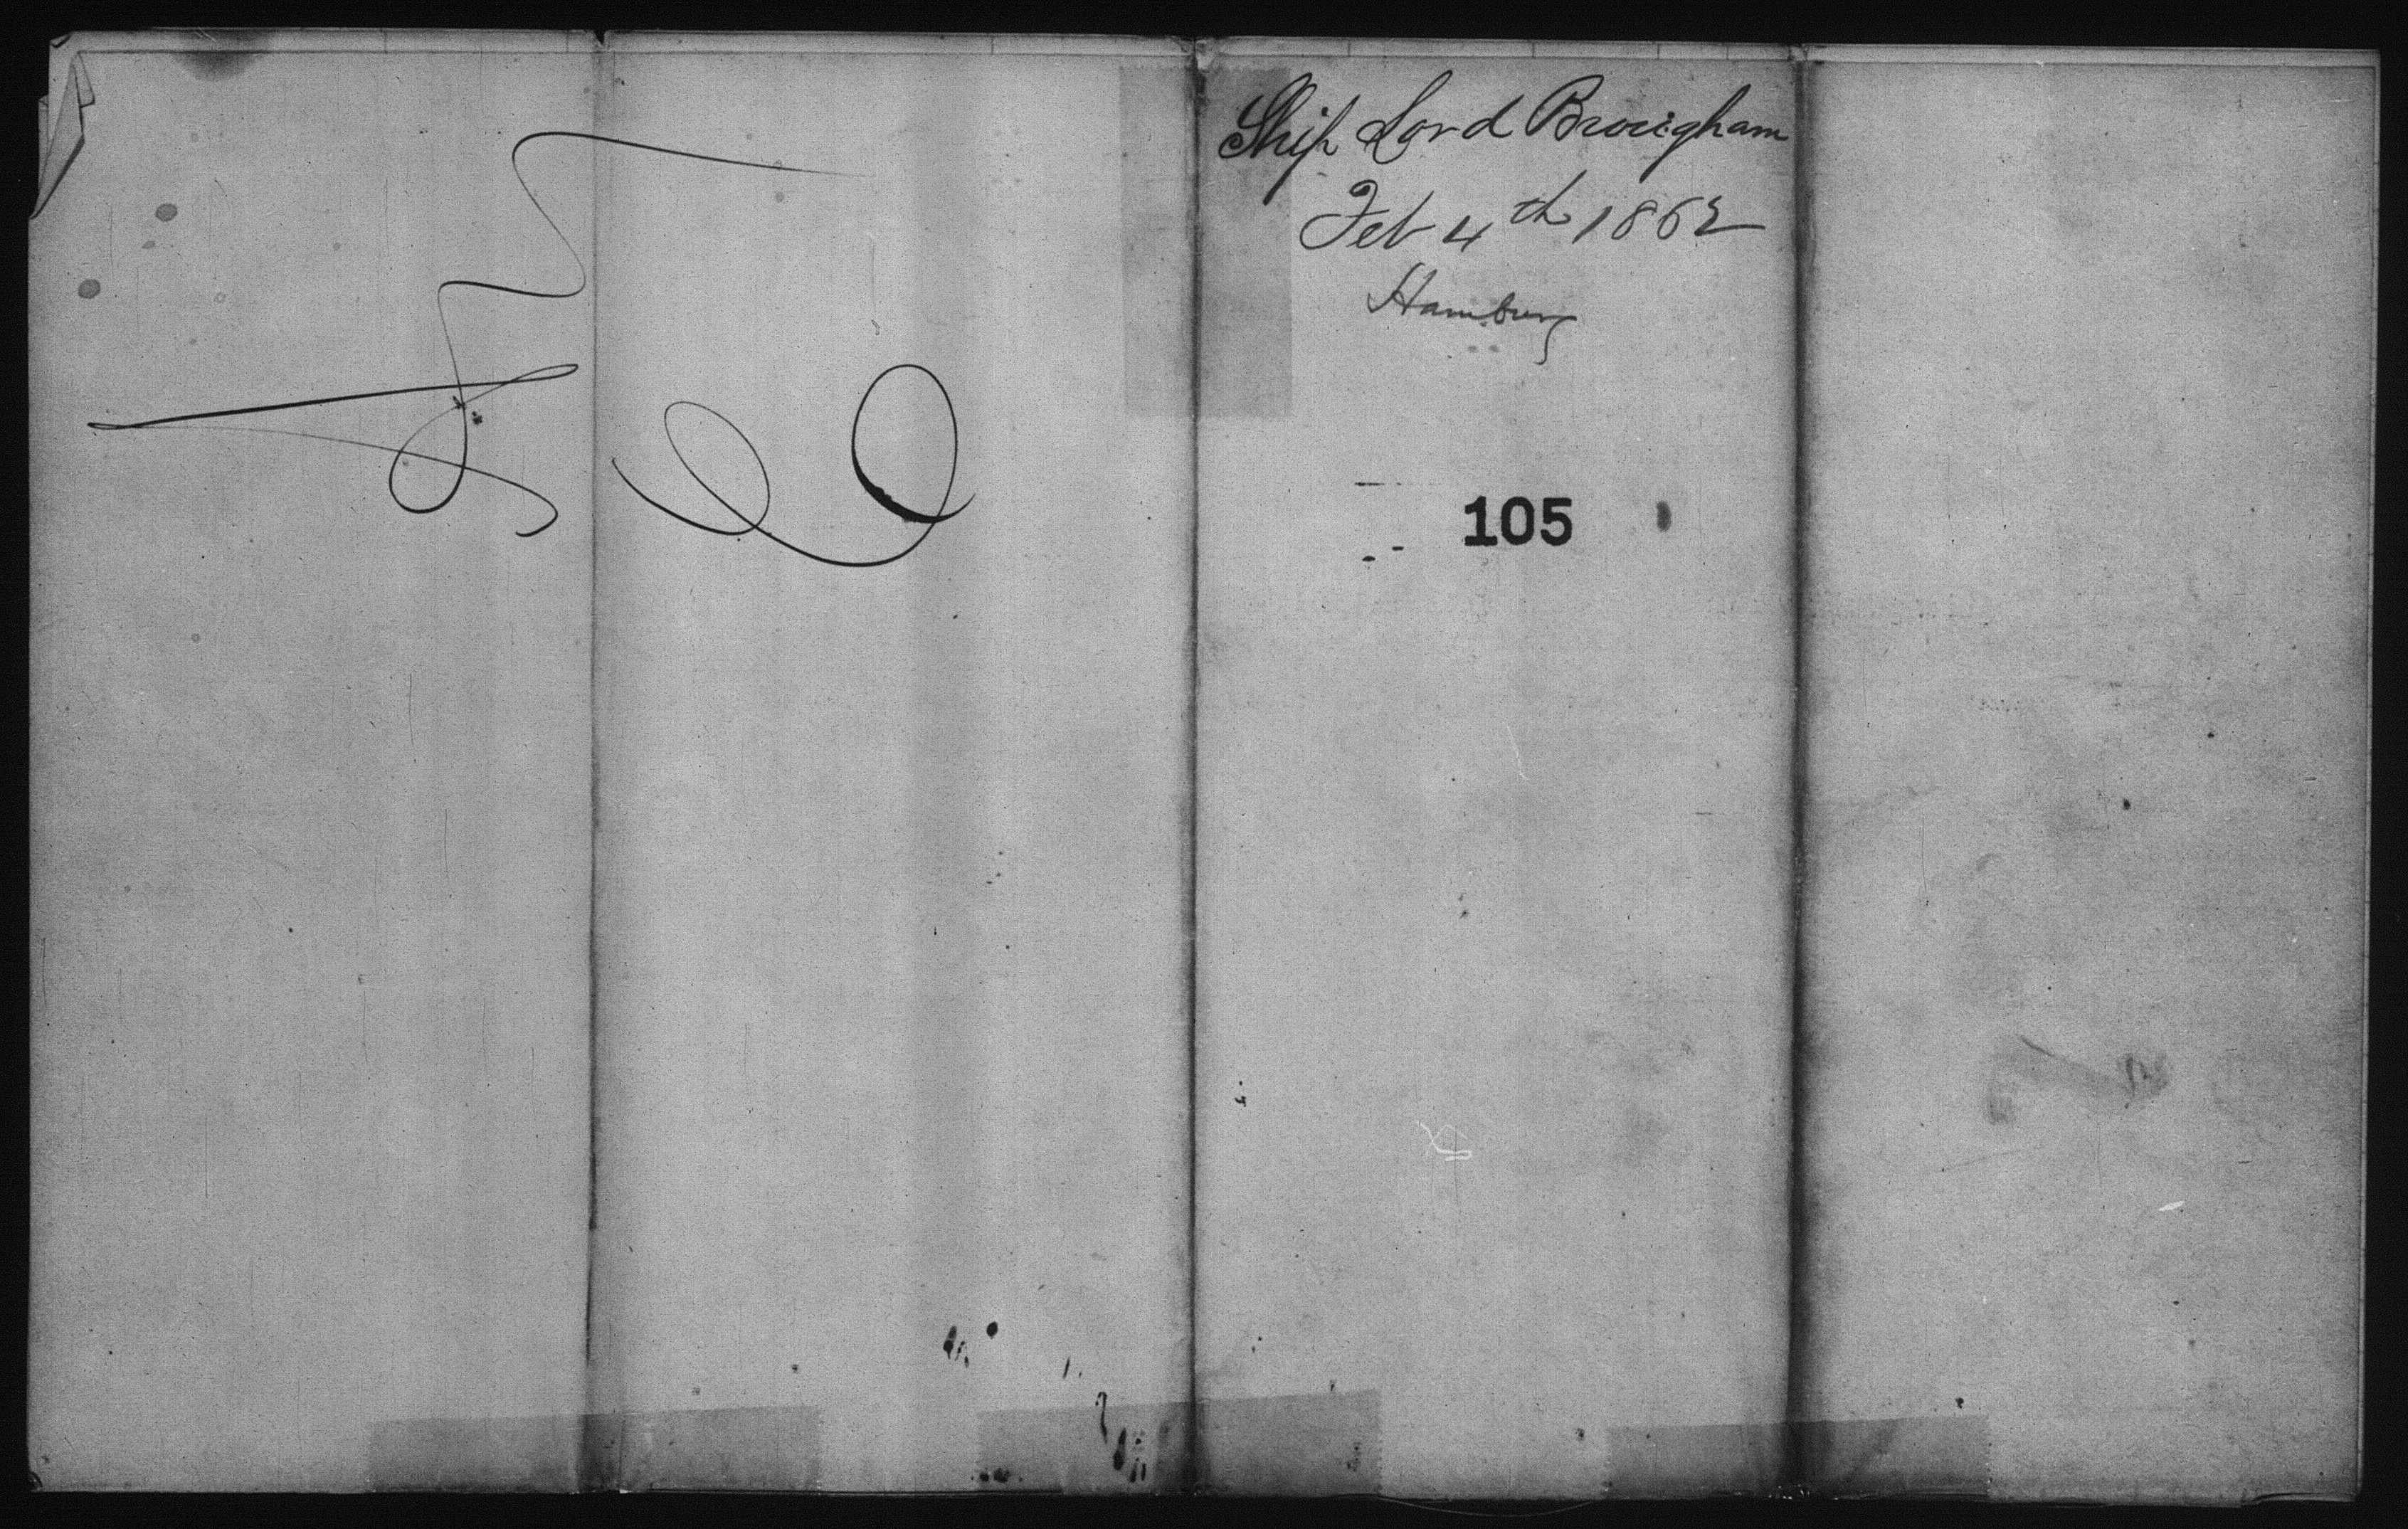 Ship Lord Brougham
Feb 4th 1862
Hamburg
105